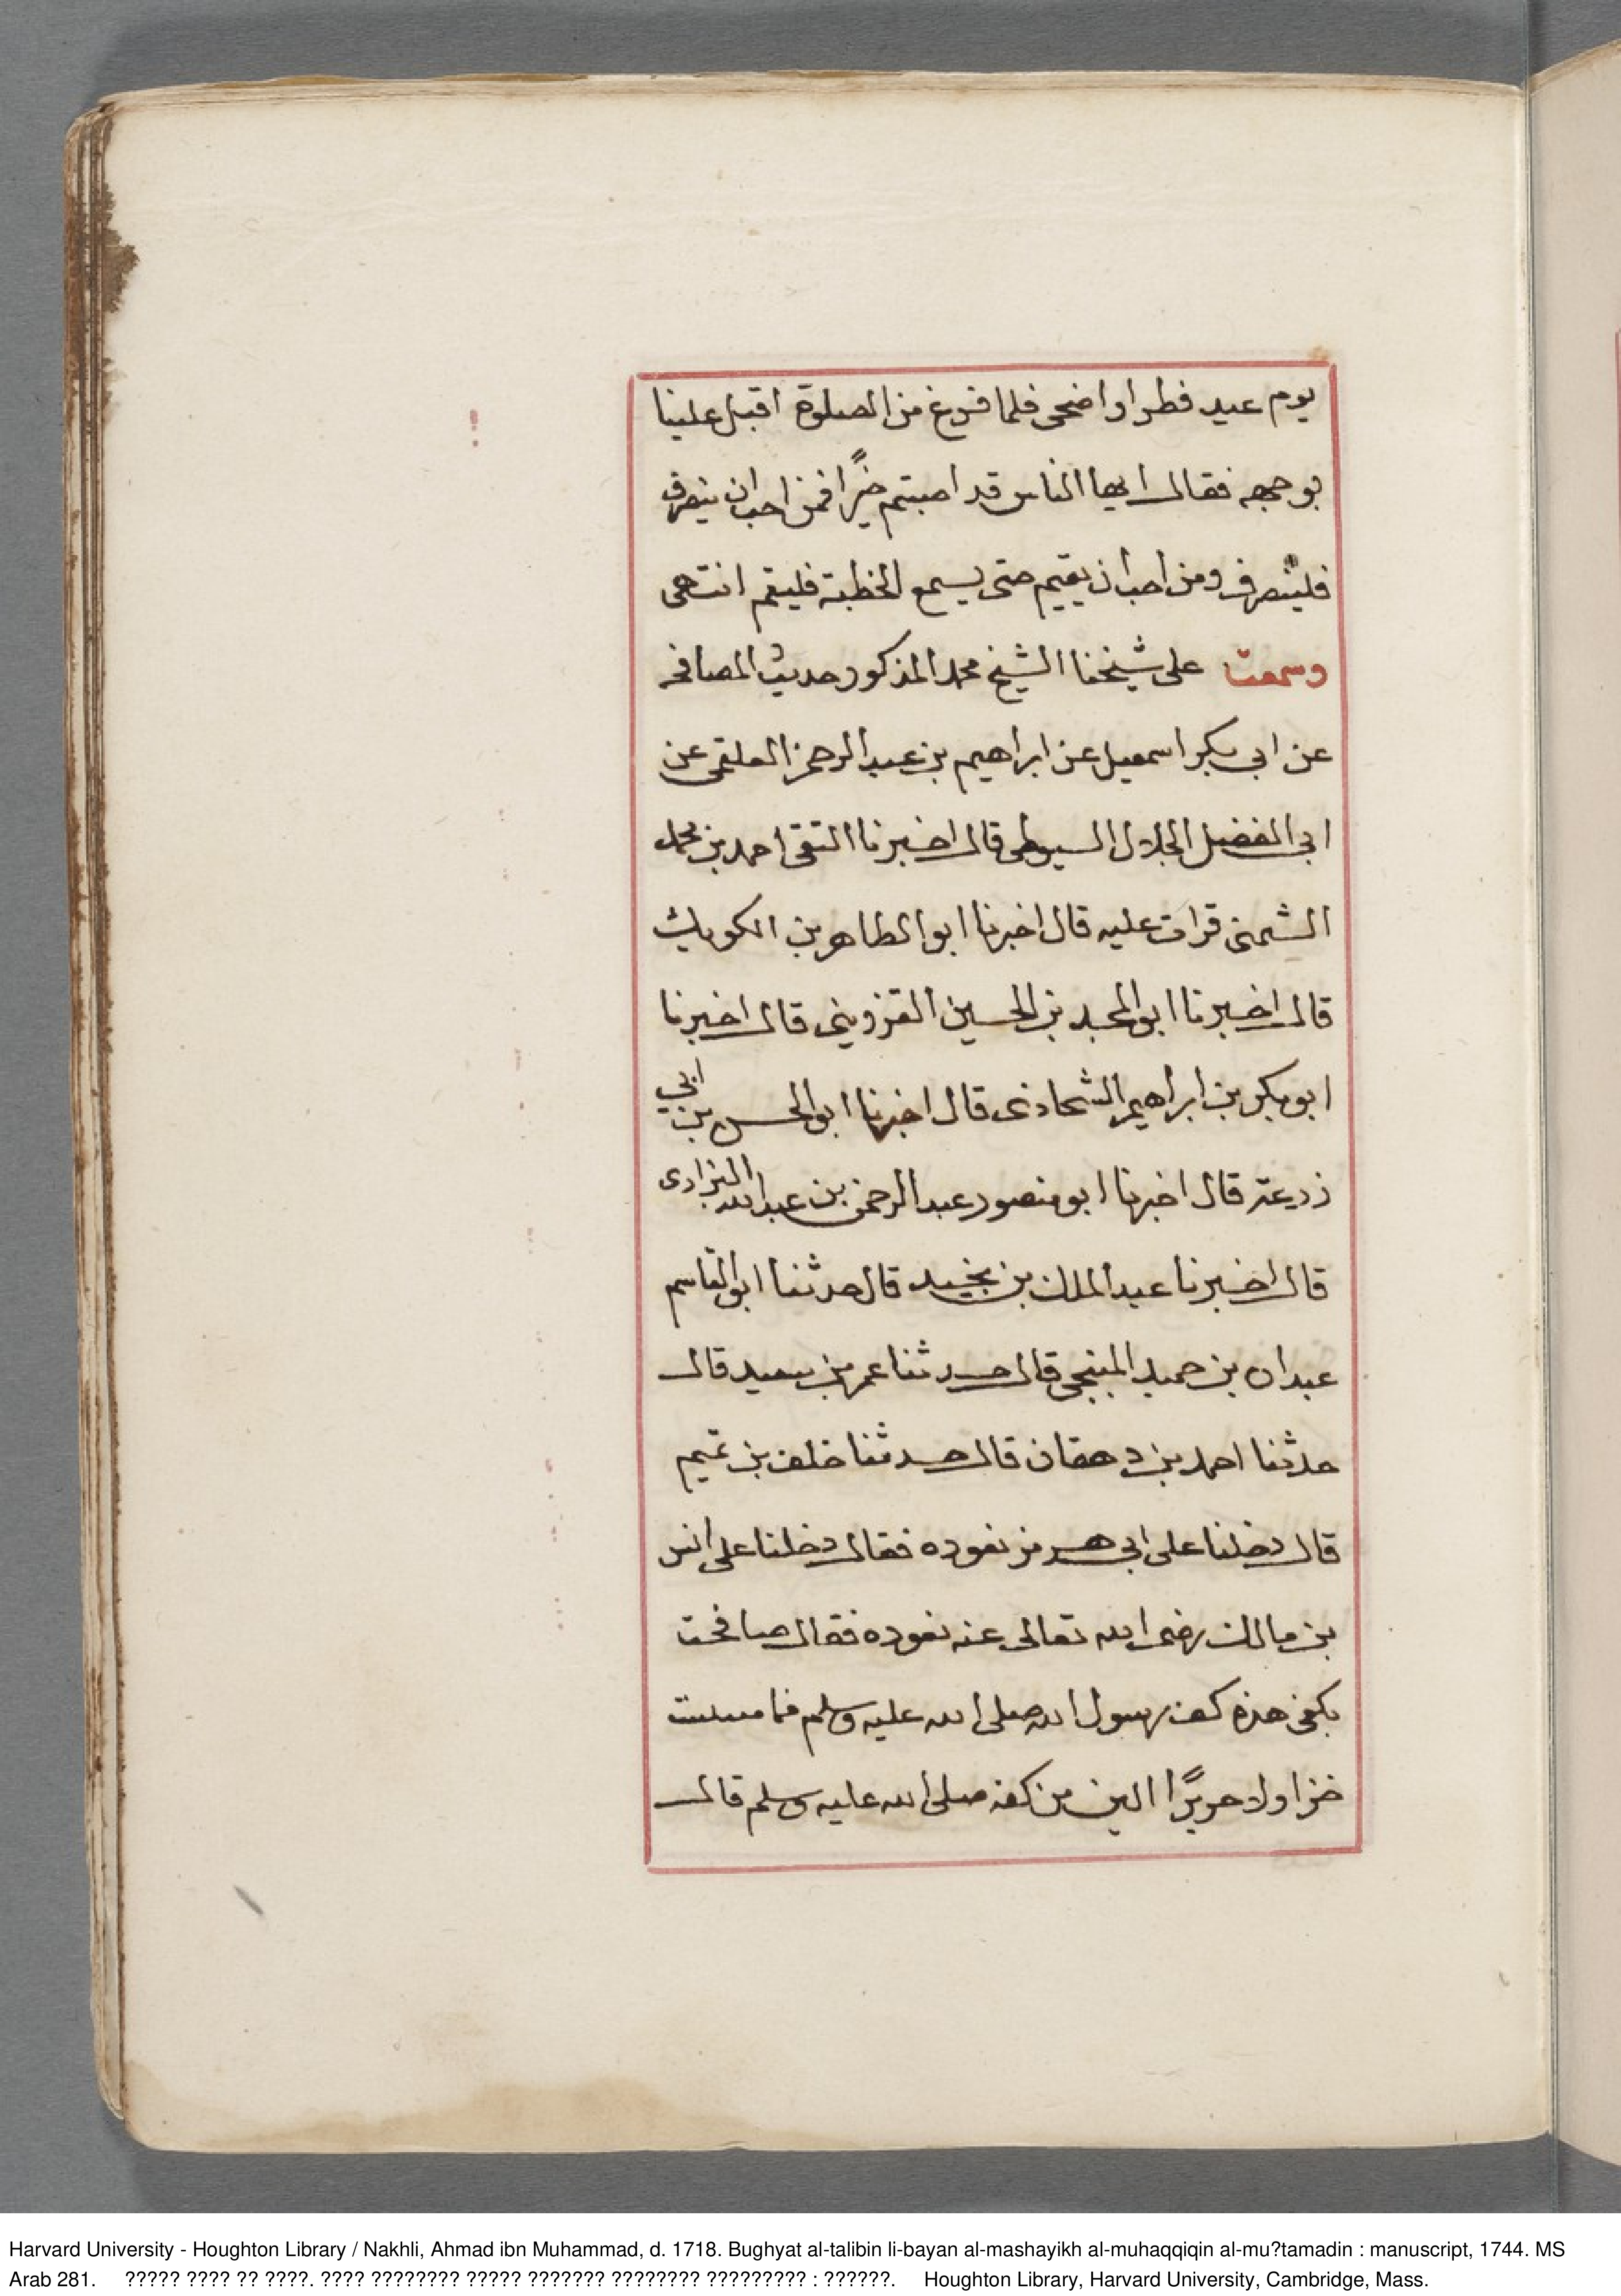 يوم عيد فطر او اضحى فلما فرغ من الصلوة اقبل علينا
بوجهه فقال ايها الناس قد اصبتم خيرًا فمن احب ان ينصرف
فلينصرف ومن احب ان يقيم حتى يسمع الخطبة فليقم انتهى
وسمعت على شيخنا الشيخ محمد المذكور حديث المصافحه
عن ابي بكر اسمعيل عن ابراهيم بن عبد الرحمن العلقمى عن
ابى الفضل الجلال السيوطى قال اخبرنا التقى احمد بن محمد
الشمنى قرات عليه قال اخبرنا ابو الطاهر بن الكويك
قال اخبرنا ابو المجد بن الحسين القزوينى قال اخبرنا
ابو بكر بن ابراهيم الشحاذى قال اخبرنا ابو الحسن بن ابي
زرعة قال اخبرنا ابو منصور عبد الرحمن بن عبد الله البزارى
قال اخبرنا عبد الملك بن نجيد قال حدثنا ابو القاسم
عبدان بن حميد المنبجى قال حدثنا عمر بن سعيد قال
حدثنا احمد بن دهقان قال حدثنا خلف بن تميم
قال دخلنا على ابى هرمز نعوده فقال دخلنا على انس
بن مالك رضى الله تعالى عنه نعوده فقال صافحت
بكفى هذه كف رسول الله صلى الله عليه وسلم فما مسست
خزا ولا حريرًا الين من كفه صلى الله عليه وسلم قال
Harvard University - Houghton Library / Nakhli, Ahmad ibn Muhammad, d. 1718. Bughyat al-talibin li-bayan al-mashayikh al-muhaqqiqin al-mu?tamadin : manuscript, 1744. MS
Arab 281. ????? ???? ?? ????. ???? ???????? ????? ??????? ???????? ????????? : ??????. Houghton Library, Harvard University, Cambridge, Mass.